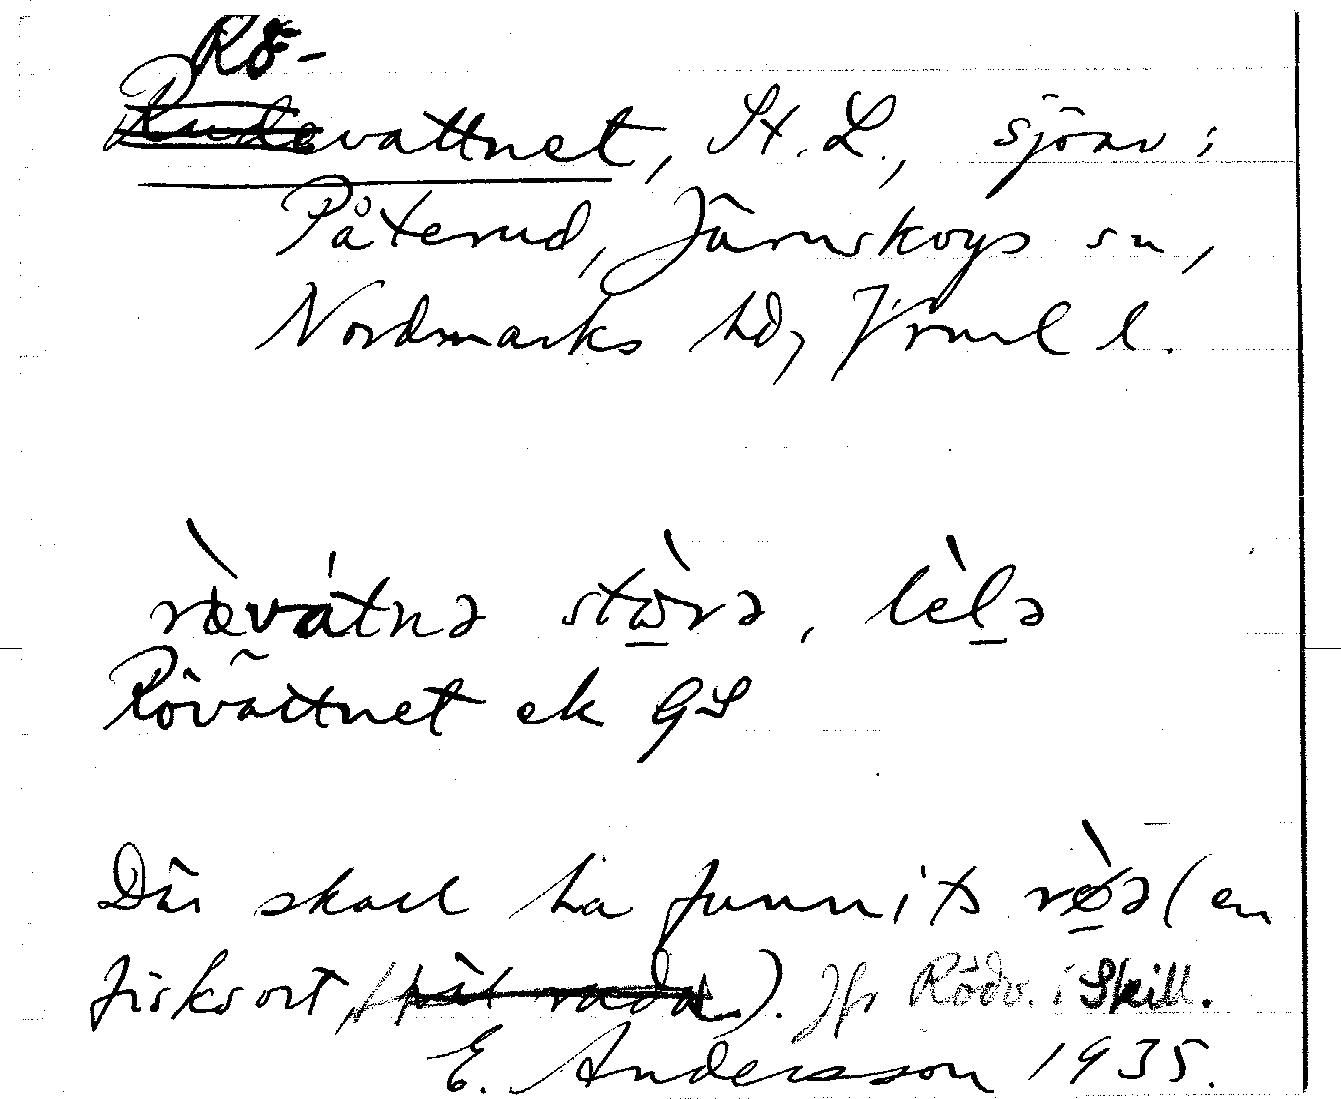 Rö-
Rudevattnet, St. L., sjöar i
Påterud, Järnskogs sn,
Nordmarks hd, Vrml l.
rœ̀vátnə stὼrə, lèlə
Rövattnet ek GS
Där skall ha funnits rø̀ə (en
fisksort, ). Jfr Rödv. i Skill.
E. Andersson 1935.